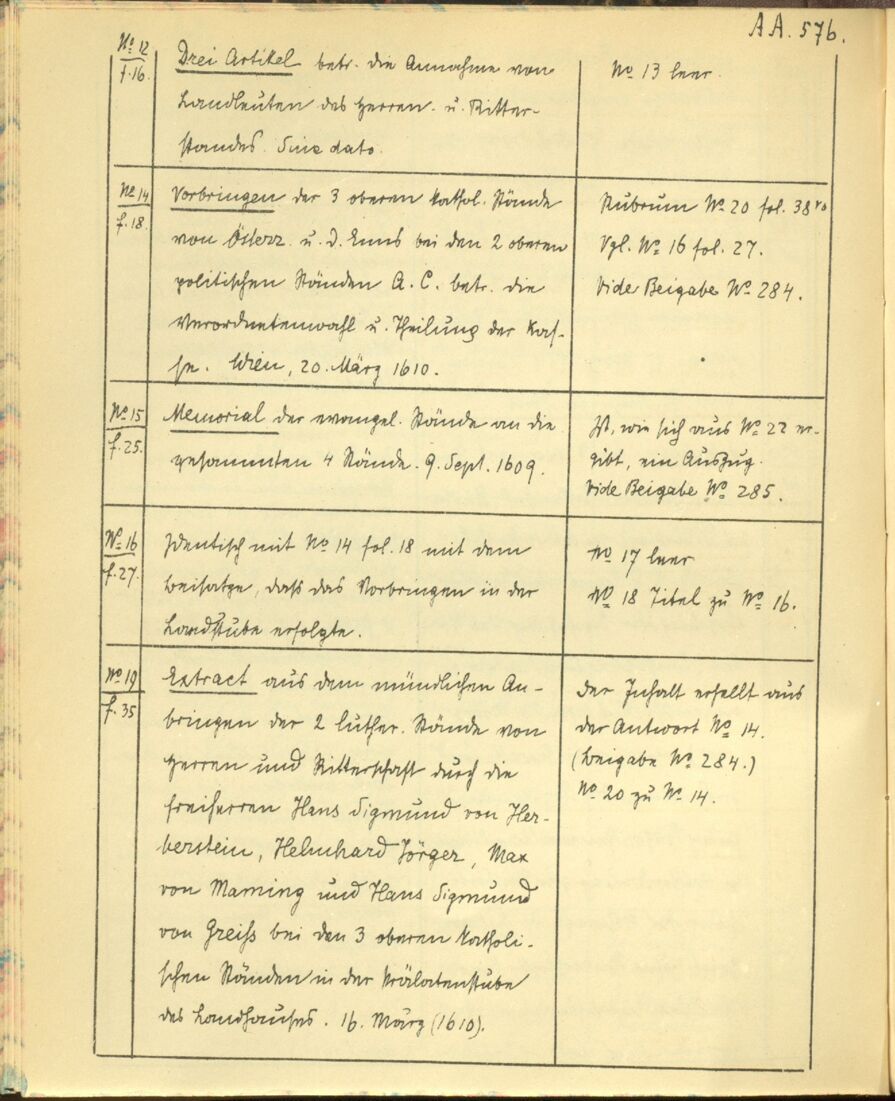 AA. 576.
No 12
f. 16.
Drei Artikel betr. die Annahme von
Landleuten des Herren- u. Ritter-
standes. Sine dato.
No 13 leer.
No 14
f. 18.
Vorbringen der 3 oberen kathol. Stände
von Österr. u. d. Enns bei den 2 oberen
politischen Ständen A. C. betr. die
Verordnetenwahl u. Theilung der Kas-
se. Wien, 20. März 1610.
Rubrum No 20 fol. 38 vo
Vgl. No 16 fol. 27.
Vide Beigabe No 284.
No 15
f. 25.
Memorial der evangel. Stände an die
gesammten 4 Stände. 9. Sept. 1609.
Ist, wie sich aus No 22 er-
gibt, ein Auszug.
Vide Beigabe No 285.
No 16
f. 27.
Identisch mit No 14 fol. 18 mit dem
Beisatze, daß das Vorbringen in der
Landstube erfolgte.
No 17 leer
No 18 Titel zu No 16.
No 19
f. 35
Extract aus dem mündlichen An-
bringen der 2 luther. Stände von
Herren und Ritterschaft durch die
Freiherren Hans Sigmund von Her-
berstein, Helmhard Jörger, Max
von Maming und Hans Sigmund
von Greiß bei den 3 oberen katholi-
schen Ständen in der Prälatenstube
des Landhauses. 16. März (1610).
Der Inhalt erhellt aus
der Antwort No 14.
(Beigabe No 284.)
No 20 zu No 14.